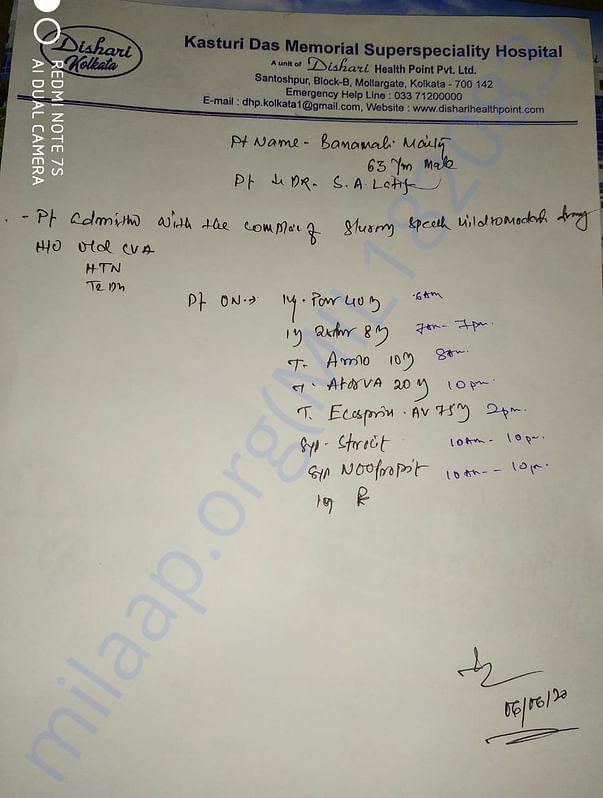 Dishari
Kolkata
Kasturi Das Memorial Superspeciality Hospital
A unit of Dishari Health Point Pvt. Ltd.
Santoshpur, Block-B, Mollargate, Kolkata - 700 142
Emergency Help Line : 033 71200000
E-mail : dhp.kolkata1@gmail.com, Website : www.disharihealthpoint.com
Pt Name - Banamali Maity
63 Y/m Male
Pt u DR. S. A. Latif
- Pt admitted with the of speech
H/O old CVA
HTN
T2DM
Pt ON → Inj. Pan 40 6am
Inj 8 7am - 7pm.
T. Amlo 10 8am.
T. AtorVA 20 10pm.
T. Ecosprin. AV 75 2pm.
Syp. Strocit 10am - 10pm.
Syp Nooropit 10am - 10pm.
Inj
06/06/20
REDMI NOTE 7S
AI DUAL CAMERA
milaap.org(MIL182033)